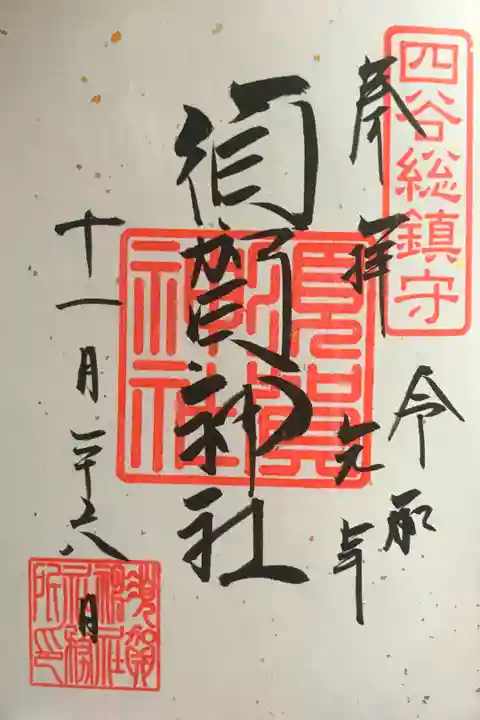 四谷総鎮守
奉拝 令和元年
須賀神社
須賀神社
十一月二十六日
須賀神社社務所印